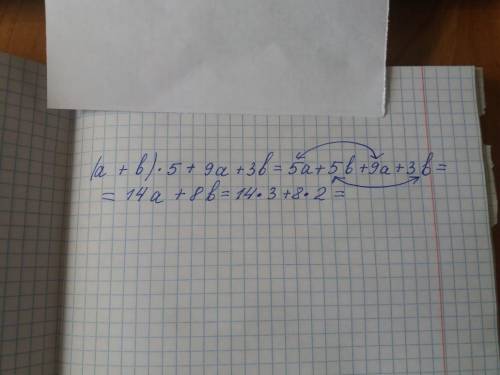 (a + b) · 5 + 9a + 3b = 5a + 5b + 9a + 3b =
= 14a + 8b = 14 · 3 + 8 · 2 =